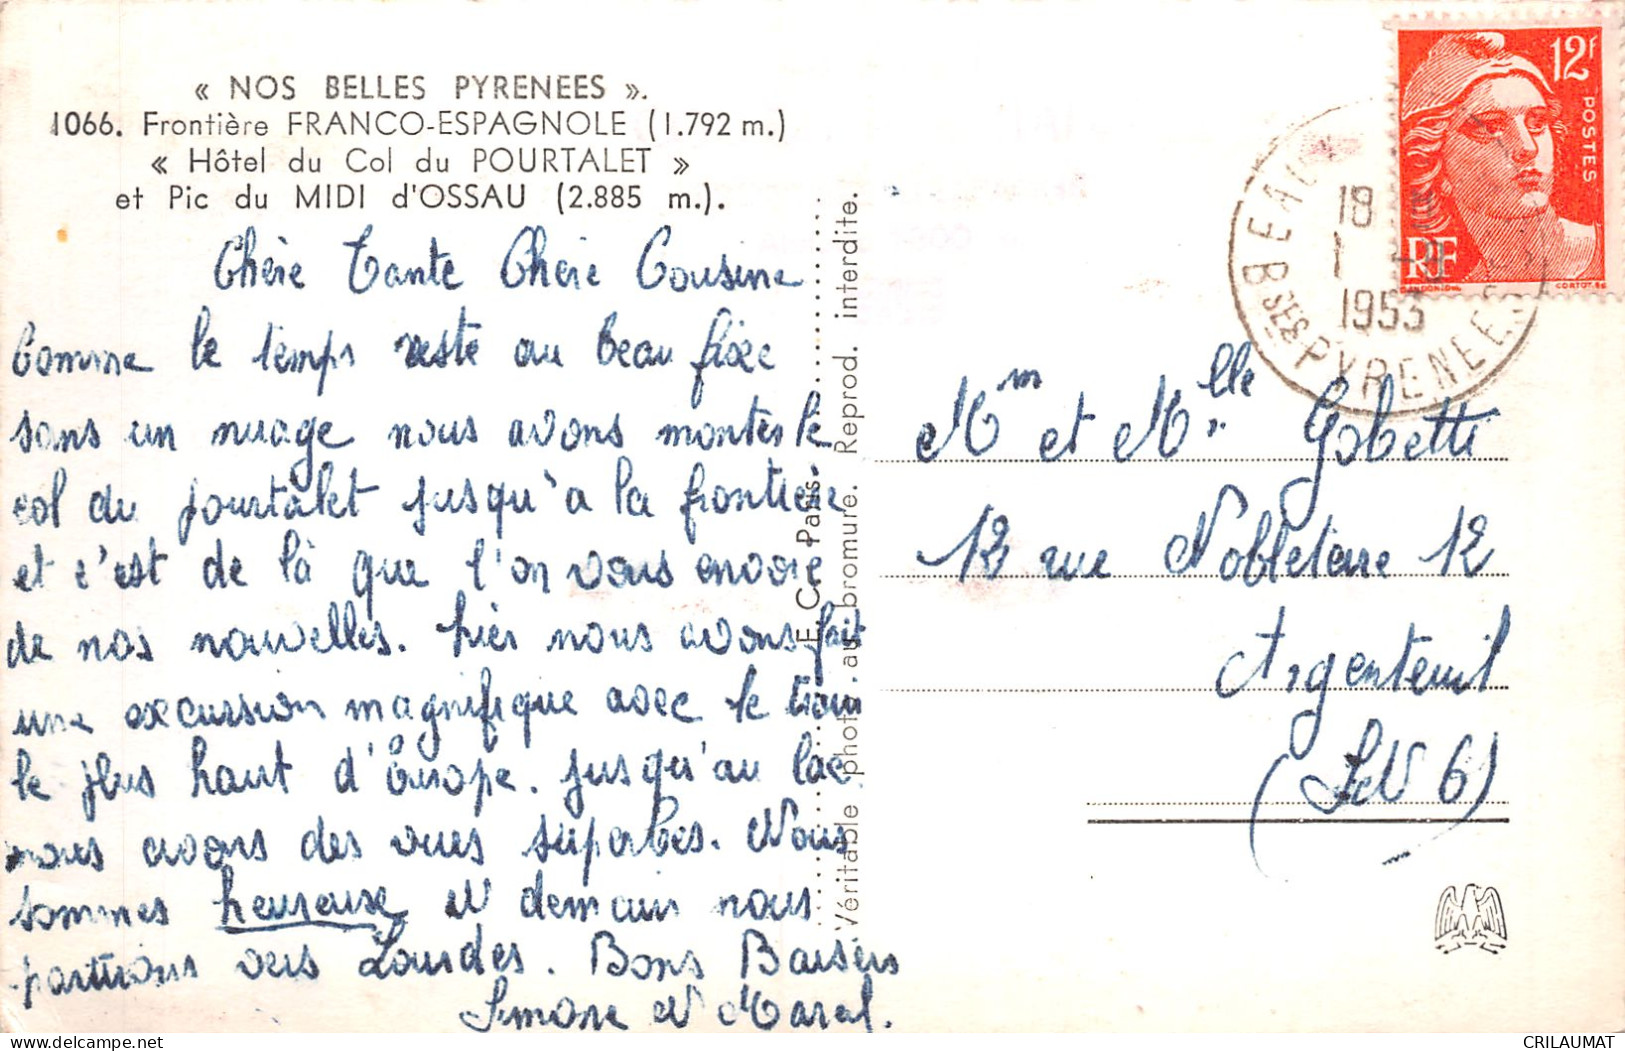 « NOS BELLES PYRENEES ».
1066. Frontière FRANCO-ESPAGNOLE (1.792 m.)
« Hôtel du Col du POURTALET »
et Pic du MIDI d'OSSAU (2.885 m.).
Chère Tante Chère Cousine
Comme le temps reste au beau fixe
sans un nuage nous avons montés le
col du pourtalet jusqu'à la frontière
et c'est de là que l'on vous envoie
de nos nouvelles. hier nous avons fait
une excursion magnifique avec le train
le plus haut d'Europe. jusqu'au lac
nous avons des vues superbes. Nous
sommes heureuse et demain nous
partirons vers Lourdes. Bons Baisers
Simone et Marcel.
E. C. Paris.
Véritable photo au bromure. Reprod. interdite.
12F
POSTES
RF
GANDON
CORTOT
18
1 -9
1953
BSES PYRENEES
Mm et Mlle Gobetti
12 rue Nobletaire 12
Argenteuil
(S et O)
CRILAUMAT